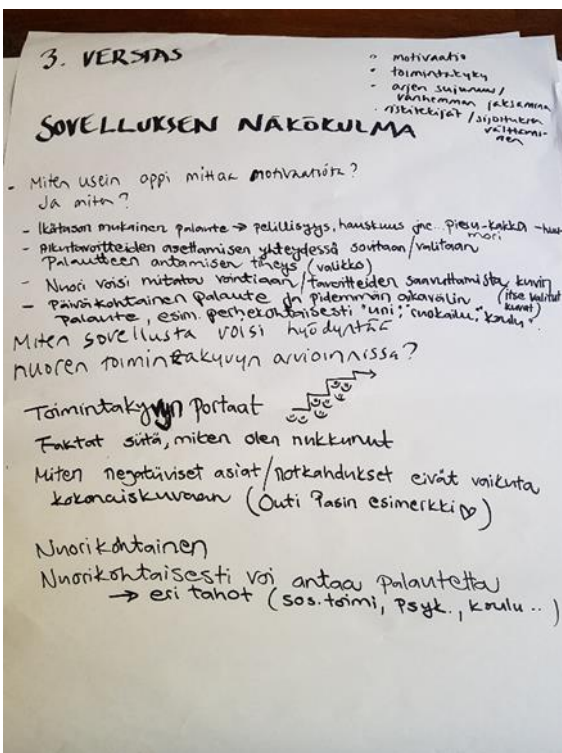 3. VERSTAS
motivaatio
toimintakyky
arjen sujuvuus/
vanhemman jaksaminen
riskitekijät/sijoituksen
välttämi-
nen
SOVELLUKSEN NÄKÖKULMA
- Miten usein appi mittaa motivaatiota?
Ja miten?
- Ikätason mukainen palaute → pelillisyys, hauskuus jne. pieru-kakka-huu-
mori
- Alkutavoitteiden asettamisen yhteydessä sovitaan/valitaan
Palautteen antamisen tiheys (valikko)
- Nuori voisi mitata vointiaan/tavoitteiden saavuttamista kuvin
(itse valitut
kuvat)
- Päiväkohtainen palaute ja pidemmän aikavälin
palaute, esim. perhekohtaisesti "uni", "ruokailu", "koulu".
Miten sovellusta voisi hyödyntää
nuoren toimintakyvyn arvioinnissa?
Toimintakyvyn portaat
Faktat siitä, miten olen nukkunut
Miten negatiiviset asiat/notkahdukset eivät vaikuta
kokonaiskuvaan (Outi Pasin esimerkki ♡)
Nuorikohtainen
Nuorikohtaisesti voi antaa palautetta
→ eri tahot (sos.toimi, psyk., koulu..)